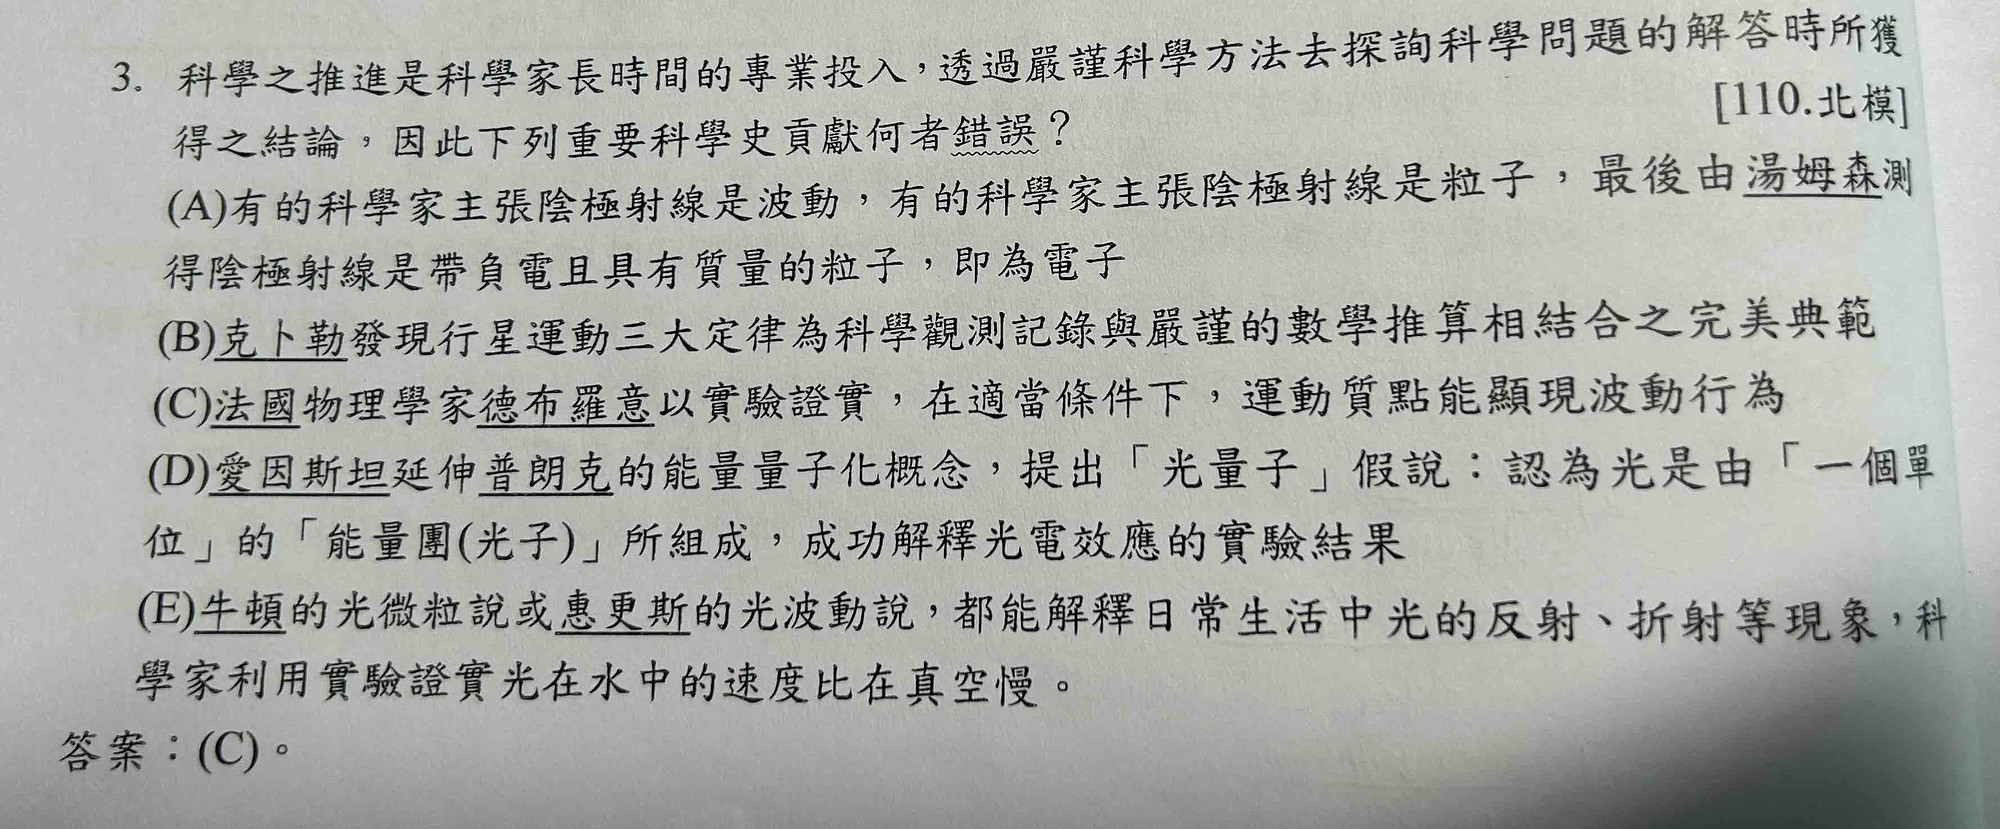 3. 科學之推進是科學家長時間的專業投入，透過嚴謹科學方法去探詢科學問題的解答時所獲
得之結論，因此下列重要科學史貢獻何者錯誤？ [110.北模]
(A)有的科學家主張陰極射線是波動，有的科學家主張陰極射線是粒子，最後由湯姆森測
得陰極射線是帶負電且具有質量的粒子，即為電子
(B)克卜勒發現行星運動三大定律為科學觀測記錄與嚴謹的數學推算相結合之完美典範
(C)法國物理學家德布羅意以實驗證實，在適當條件下，運動質點能顯現波動行為
(D)愛因斯坦延伸普朗克的能量量子化概念，提出「光量子」假說：認為光是由「一個單
位」的「能量團(光子)」所組成，成功解釋光電效應的實驗結果
(E)牛頓的光微粒說或惠更斯的光波動說，都能解釋日常生活中光的反射、折射等現象，科
學家利用實驗證實光在水中的速度比在真空慢。
答案：(C)。